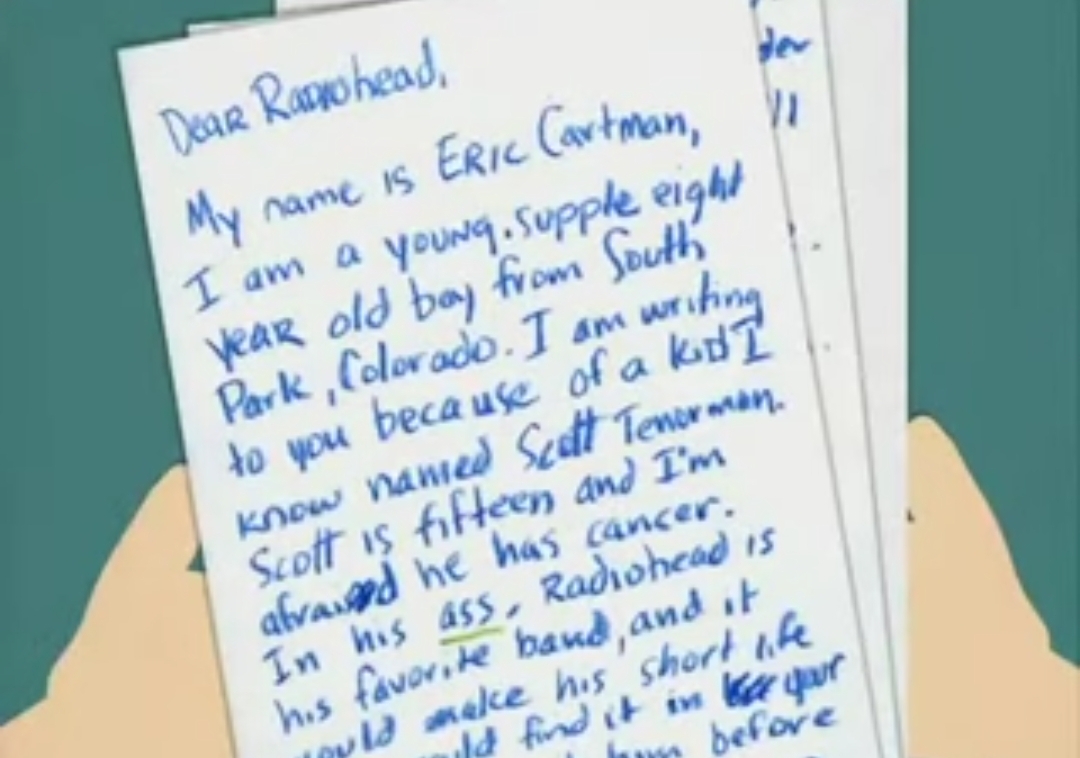 Dear Radiohead,
My name is Eric Cartman,
I am a young, supple eight
year old boy from South
Park, Colorado. I am writing
to you because of a kid I
know named Scott Tenorman.
Scott is fifteen and I'm
afraid he has cancer.
In his ass. Radiohead is
his favorite band, and it
would make his short life
find it in your
him before